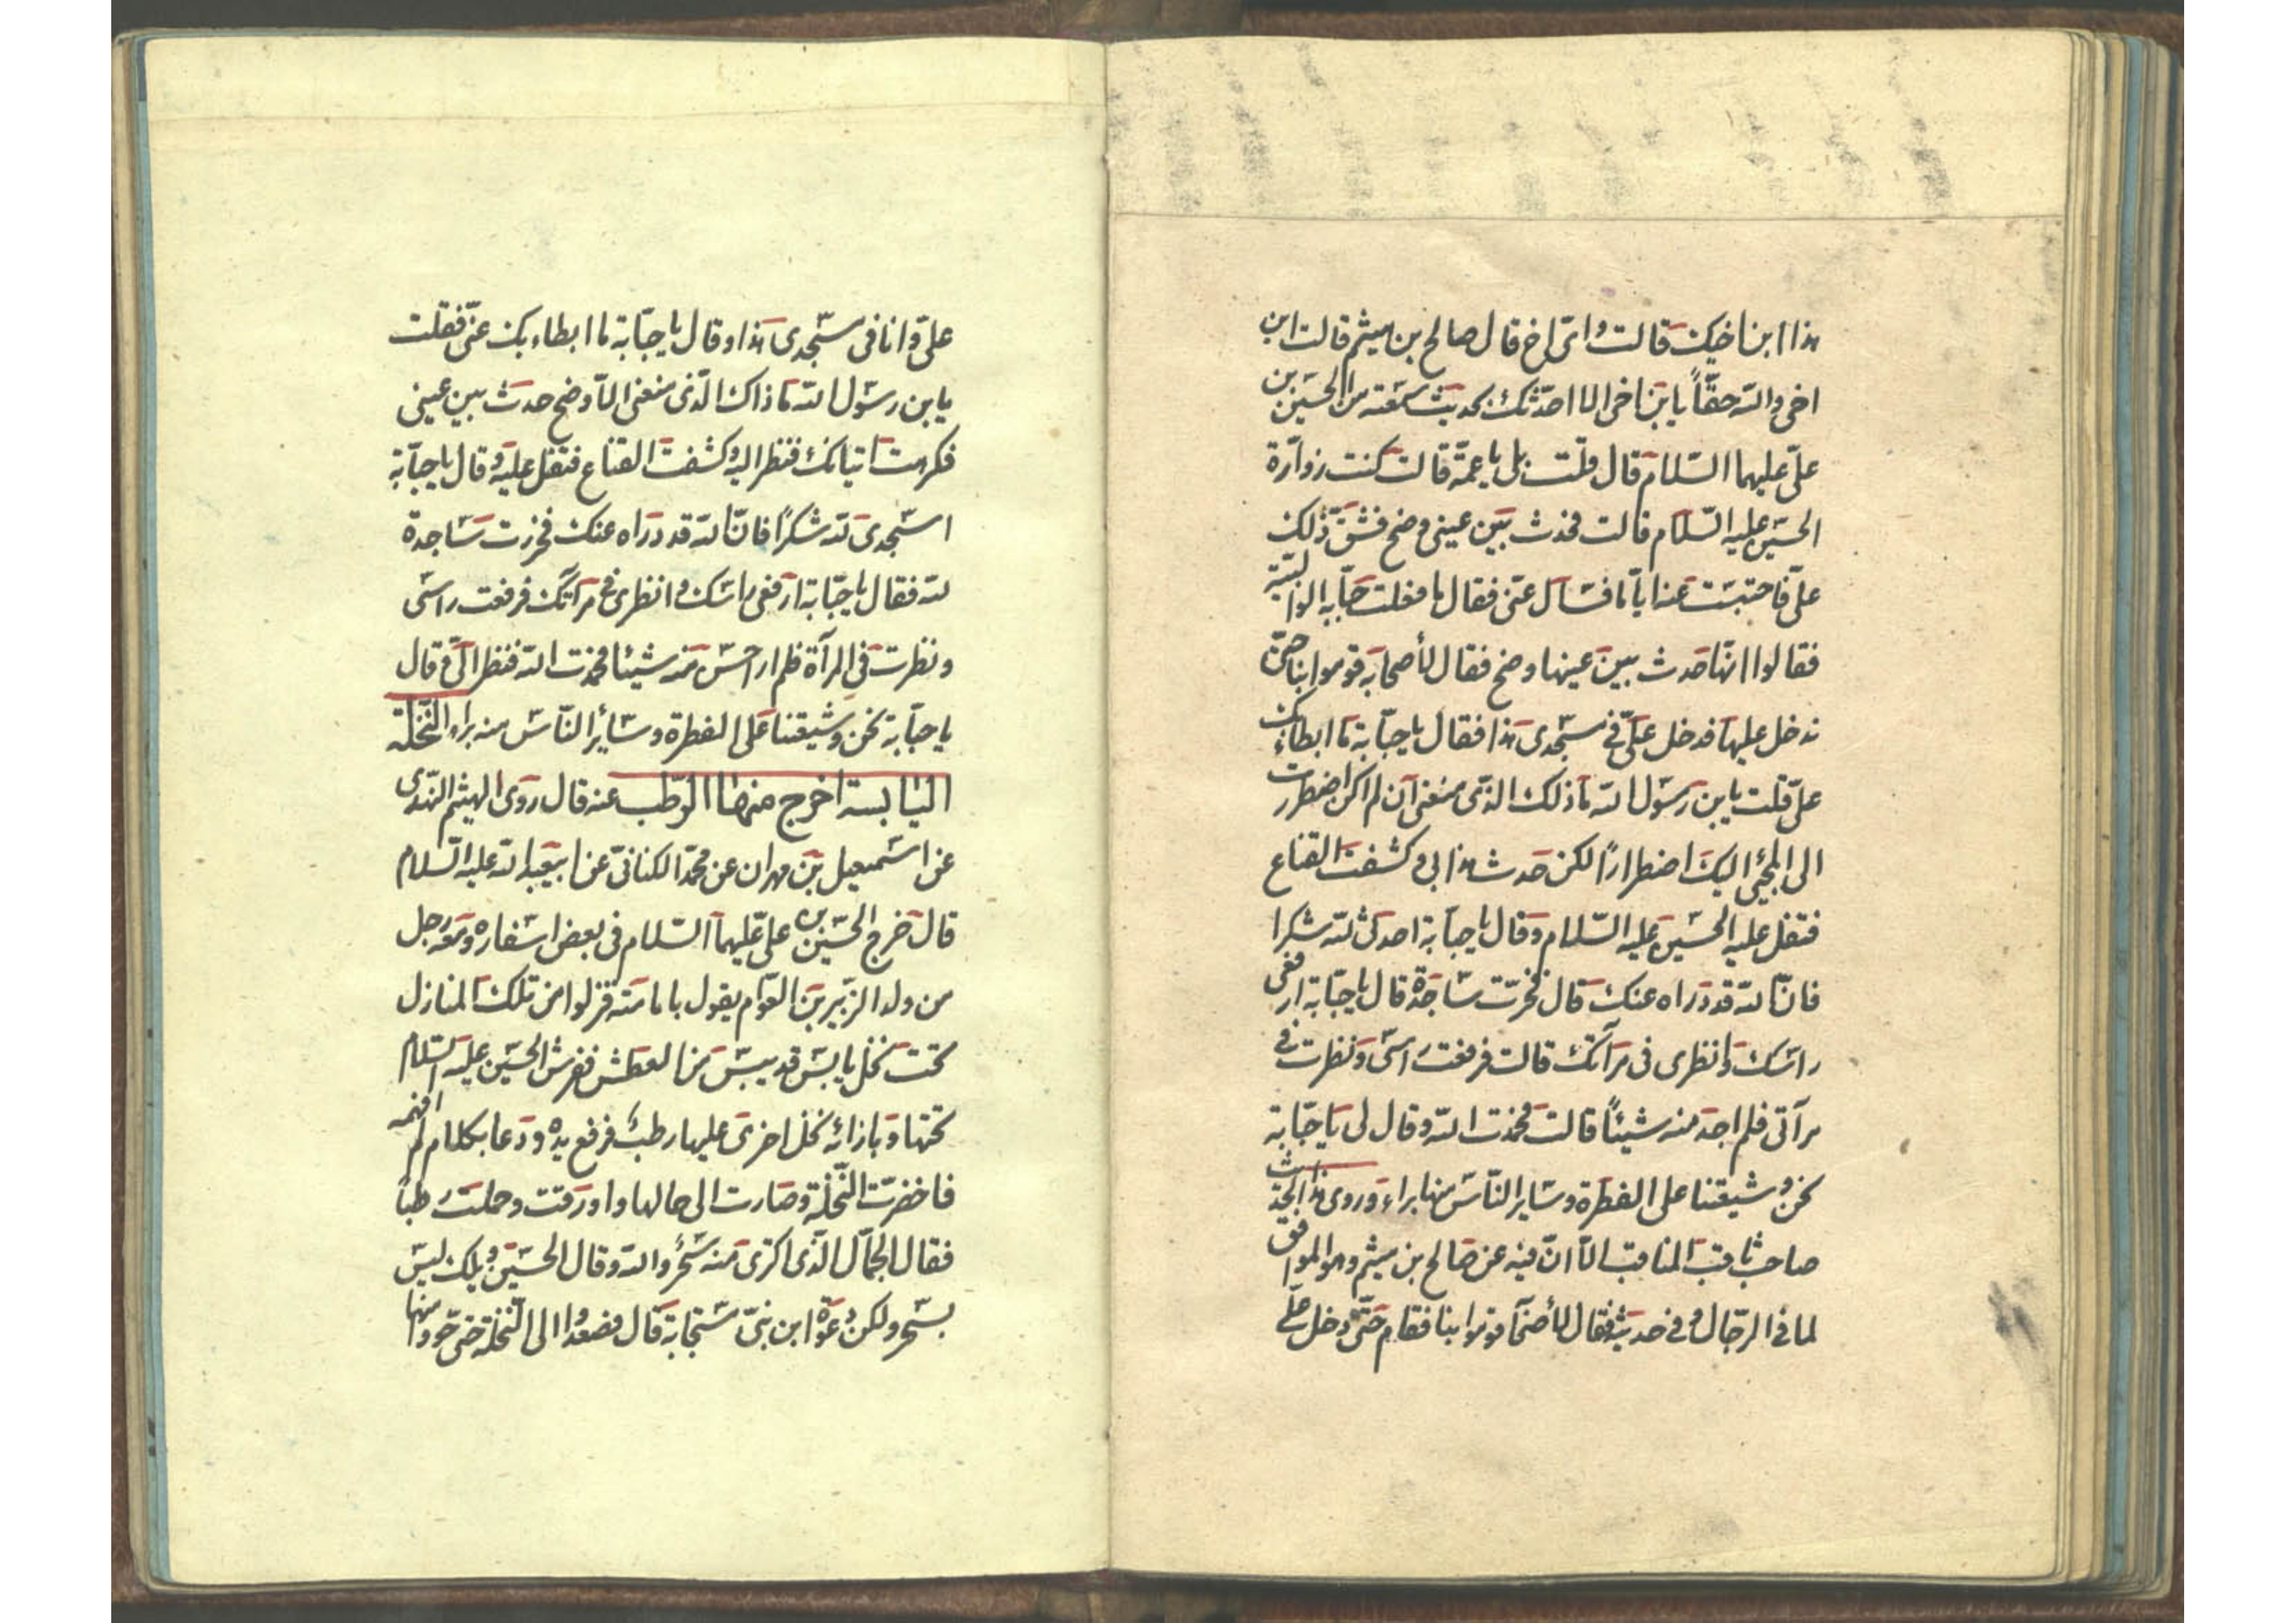 هذا ابن اخيك قالت وايّ اخ قال صالح بن ميثم قالت ابن
اخي والله حقّاً يابن اخي الا احدّثك بحديث سمعته من الحسين بن
عليّ عليهما السّلام قال قلت بلى يا عمة قالت كنت زوّارة
الحسين عليه السّلام قالت فحدث بين عيني وضح فشقّ ذلك
عليّ فاحتبست عنه ايّاما فسأل عنّي فقال ما فعلت حبّابه الوالبيّة
فقالوا انّها حدث بين عينها وضح فقال لأصحابه قوموا بنا حتّى
ندخل عليها فدخل عليّ في مسجدي هذا فقال يا حبّابة ما ابطاء بك
عليّ قلت يابن رسول الله ما ذلك الذي منعني ان لم اكن اضطررت
الى المجئ اليك اضطراراً لكن حدث هذا بي وكشفت القناع
فتفل عليه الحسين عليه السّلام وقال يا حبّابة احدثي لله شكرا
فانّ الله قد دراه عنك قال فخرّت ساجدة قال يا حبّابة ارفعي
راسك وانظري في مرآتك قالت فرفعت راسي ونظرت في
مرآتي فلم اجد منه شيئاً قالت فحمدت الله وقال لي يا حبّابة
نحن وشيعتنا على الفطرة وساير النّاس منها براء وروى هذا الحديث
صاحب ثاقب المناقب الّا انّ فيه عن صالح بن ميثم وهو الموافق
لما في الرّجال وفي حديثه فقال لأصحابه قوموا بنا فقام حتّى دخل عليّ
عليّ وانا في مسجدي هذا وقال يا حبّابة ما ابطاء بك عنّي فقلت
يابن رسول الله ما ذاك الّذي منعني الّا وضح حدث بين عيني
فكرهت اتيانك فنظر اليه وكشفت القناع فتفل عليه وقال يا حبّابة
اسجدي لله شكراً فانّ الله قد دراه عنك فخررت ساجدة
لله فقال يا حبّابة ارفعي راسك وانظري في مرآتك فرفعت راسي
ونظرت في المرآة فلم ار احسّ منه شيئا فحمدت الله فنظر الىّ وقال
يا حبّابة نحن وشيعتنا على الفطرة وسائر النّاس منه براء النّخلة
اليابسة اخرج منها الرّطب عنه قال روى الهيثم النّهدي
عن اسمعيل بن مهران عن محمّد الكناني عن ابيعبد الله عليه السّلام
قال خرج الحسين بن عليّ عليهما السّلام في بعض اسفاره ومعه رجل
من ولد الزّبير بن العوّام يقول بامامته فنزلوا من تلك المنازل
تحت نخل يابس قد يبس من العطش ففرش الحسين عليه السّلام
تحتها وبازائه نخل اخرى عليها رطب فرفع يده ودعا بكلام لم افهمه
فاخضرّت النّخلة وصارت الى حالها واورقت وحملت رطباً
فقال الجمّال الّذي اكترى منه سحر والله وقال الحسين ويلك ليس
بسحر ولكن دعوة ابن نبيّ مستجابة قال فصعدوا الى النّخلة حتى